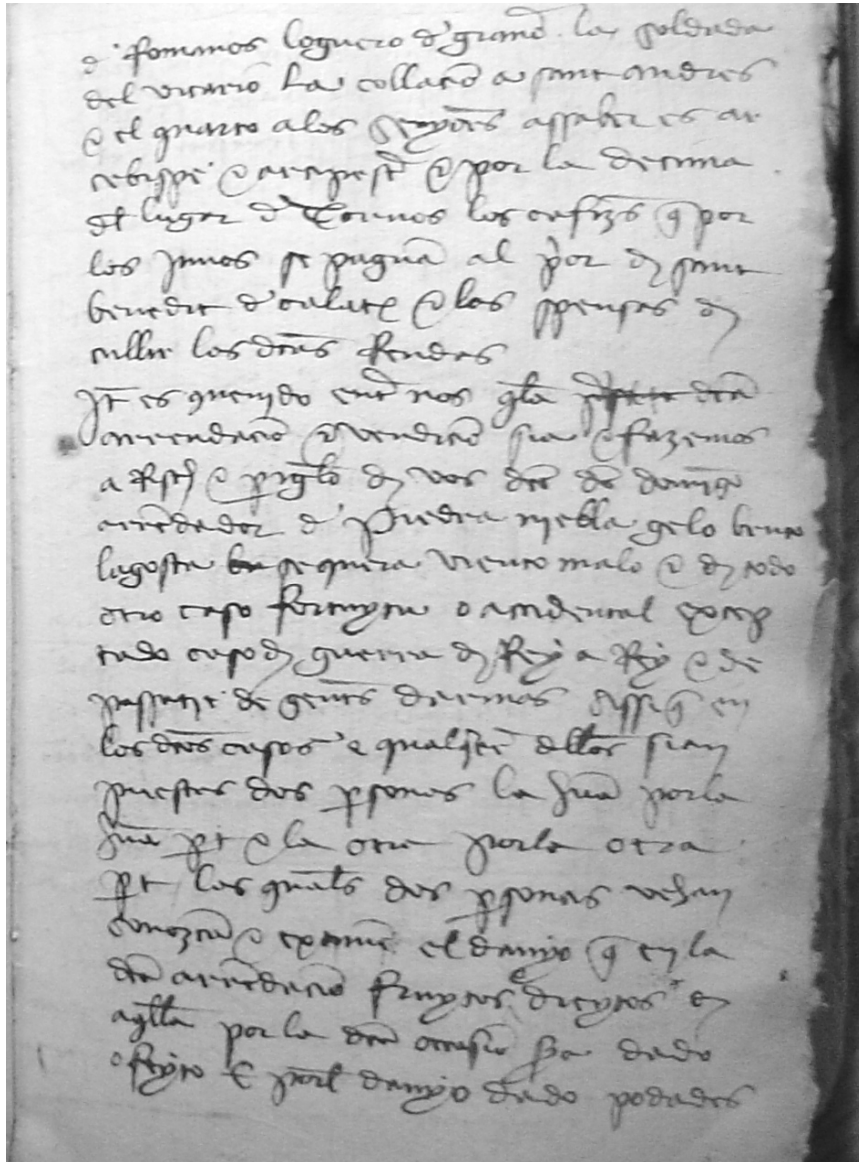 d' Romanos loguero d' graneo la soldada
del vicario la collacio a sant andres
e el quarto a los senyores assaber es ar
cebispe e arcipreste e por la decima
del lugar d' Tornos los cafizes q por
los juros se paguan al prior de sant
benedit d' calat e las spensas de
cullir las dctas Rendas
Jt es querido entre nos q la dcta
arrendacio e vendicio sia e fazemos
a Risch e periglo de vos dito don domingo
arrendador d' Piedra niebla gelo
lagosta sequera viento malo e de todo
otro caso fortuytu o accidental excep
tado caso de guerra de Rey a Rey e de
passatge de gentes darmas e assi q en
los dctos casos e qualquiere dellos sian
puestas dos psonas la huna por la
huna pt e la otra por la otra
pt las quales dos psonas vehan
conozcan e examinen el danyo q en la
dcta arrendacio fruytos e dreytos en
aqlla por la dcta occasion sera dado
o feyto E por el danyo dado podades